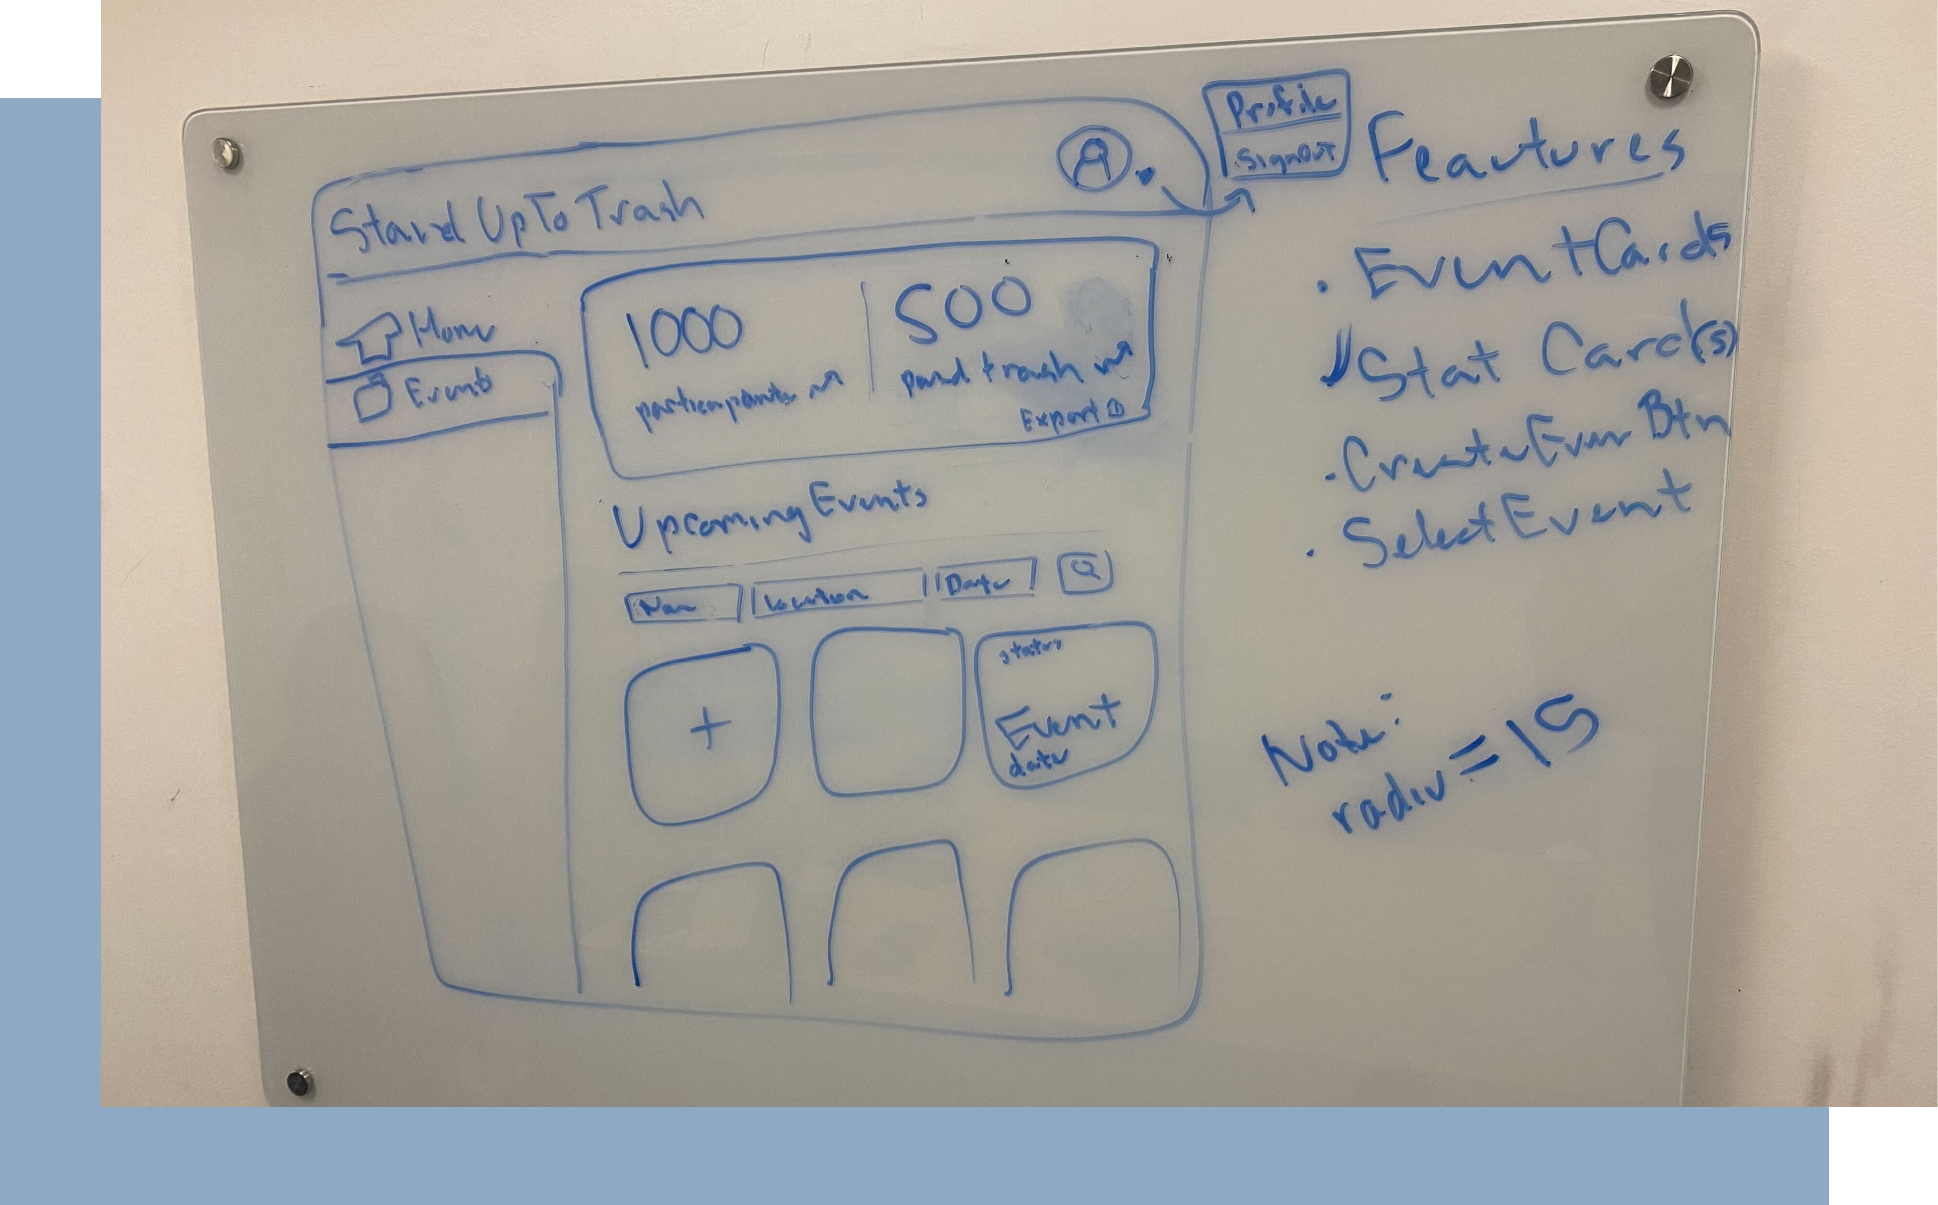 Stand UpTo Trash
Profile
SignOut
Home
Events
1000
participants
500
pound trash
Export
Upcoming Events
Name
Location
Date
+
status
Event
date
Feautures
. Event Cards
Stat Card(s)
. Create Even Btn
. Select Event
Note:
radiu = 15